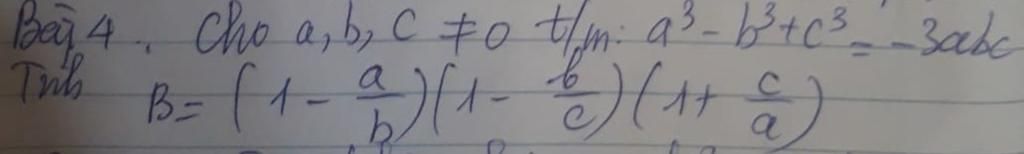 Bài 4. Cho a, b, c ≠ 0 t/m: a³ - b³ + c³ = -3abc
Tính B = (1 - a/b)(1 - b/c)(1 + c/a)